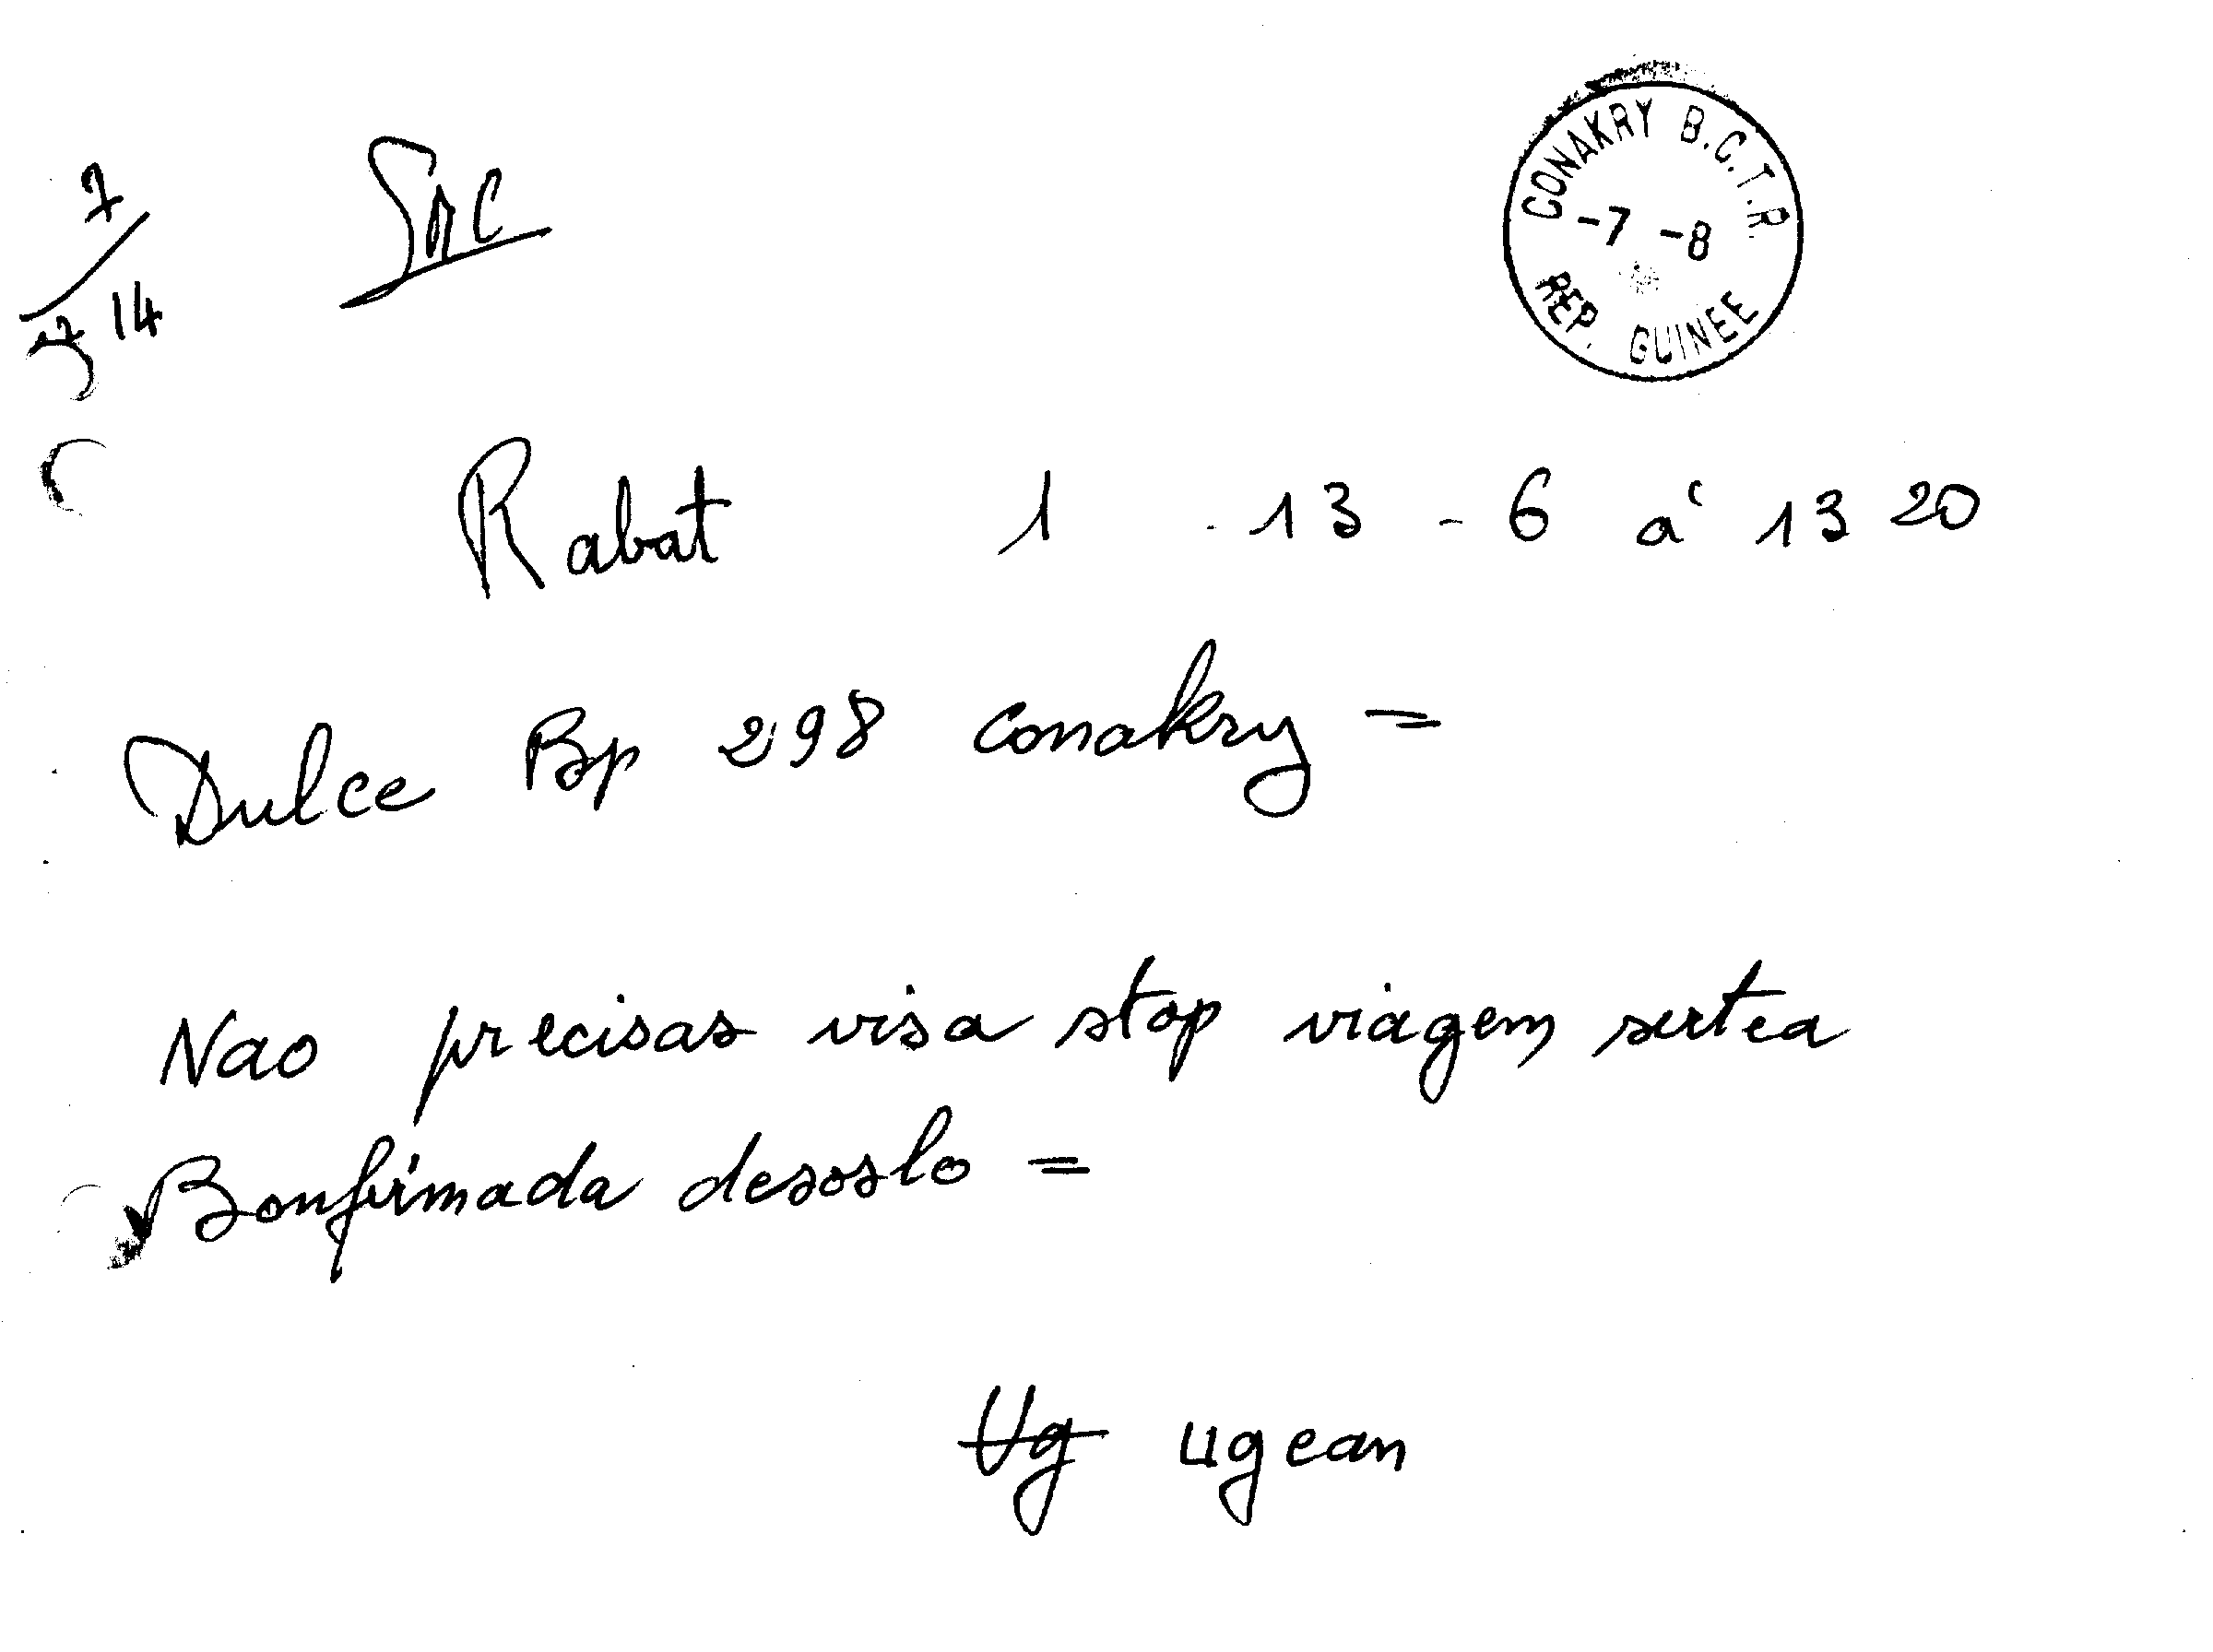 CONAKRY B.C.T.R.
-7 -8
REP. GUINEE
7
14
Rabat 1 - 13 - 6 à 13 20
Dulce Bp 298 conakry =
Nao precisas visa stop viagem sertea
Bonfirmada desoslo =
Ug ugean